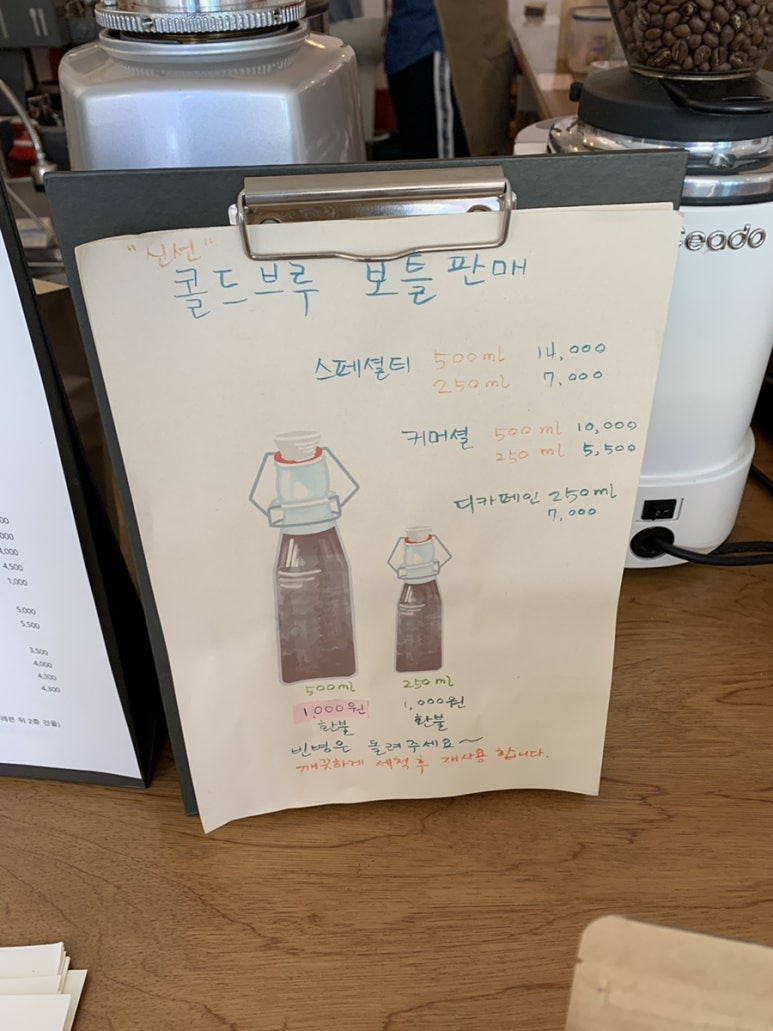 "신선"
콜드브루 보틀판매
스페셜티 500ml 14,000
250ml 7,000
커머셜 500ml 10,000
250ml 5,500
디카페인 250ml
7,000
500ml
1,000원
환불
250ml
1,000원
환불
빈병은 돌려주세요~
깨끗하게 세척 후 재사용 합니다.
eado
4,500
1,000
5,000
5,500
3,500
4,000
4,300
4,300
뒤 2층 건물)